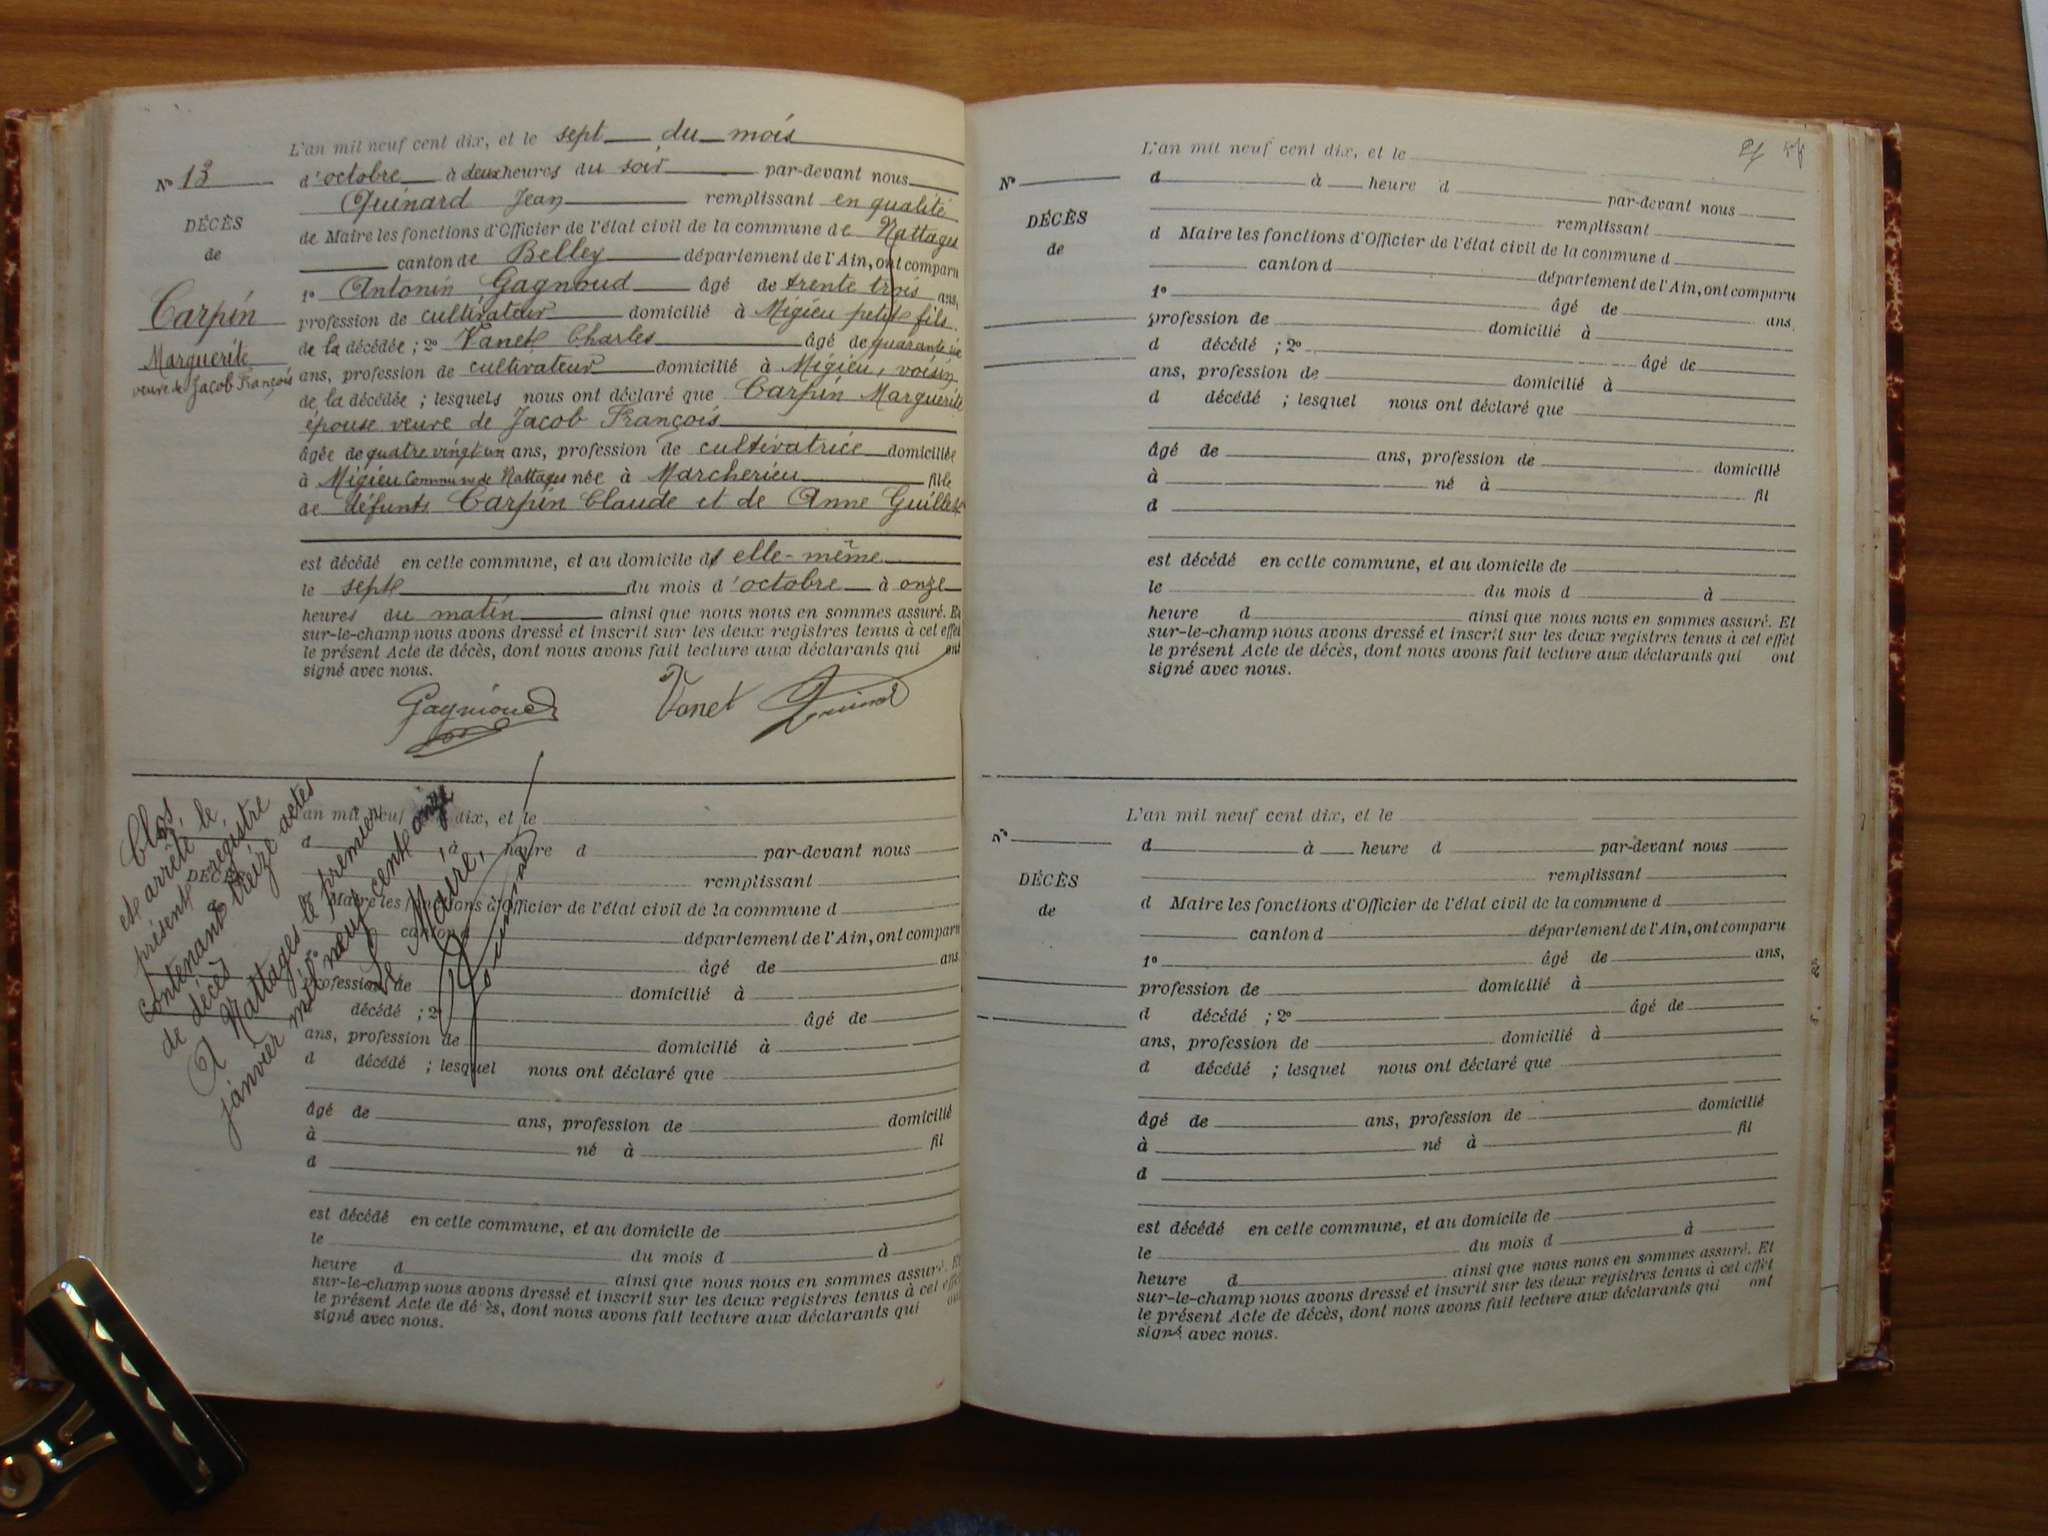 L'an mil neuf cent dix, et le sept du mois
N° 13 d'octobre à deux heures du soir par-devant nous
Guinard Jean remplissant en qualité
DÉCÈS
de Maire les fonctions d'Officier de l'état civil de la commune de Nattages
de
canton de Belley département de l'Ain, ont comparu
1° Antonin Gagnoud âgé de trente trois ans,
Carpin
profession de cultivateur domicilié à Migieu petit fils
de la décédée ; 2° Vanet Charles âgé de quarante
Marguerite
ans, profession de cultivateur domicilié à Migieu, voisin
veuve de Jacob François
de la décédée ; lesquels nous ont déclaré que Carpin Marguerite
épouse veuve de Jacob François
âgée de quatre vingt un ans, profession de cultivatrice domiciliée
à Migieu Commune de Nattages née à Marcherieu fille
de défunts Carpin Claude et de Anne Guillet
est décédé en cette commune, et au domicile d' elle-même
le sept du mois d'octobre à onze
heures du matin ainsi que nous nous en sommes assuré. Et
sur-le-champ nous avons dressé et inscrit sur les deux registres tenus à cet effet
le présent Acte de décès, dont nous avons fait lecture aux déclarants qui ont
signé avec nous.
Gagnoud Vanet Guinard
Clos,
et arrêté le,
présent registre
contenant treize actes
de décès
A Nattages le premier
janvier mil neuf cent onze
Le Maire,
Guinard
an mil neuf dix, et le
d à heure d par-devant nous
DÉCÈS
remplissant
Maire les fonctions d'Officier de l'état civil de la commune d
canton d département de l'Ain, ont comparu
1° âgé de ans
profession de domicilié à
décédé ; 2° âgé de
ans, profession de domicilié à
d décédé ; lesquel nous ont déclaré que
âgé de ans, profession de domicilié
à né à fil
d
est décédé en cette commune, et au domicile de
le du mois d à
heure d ainsi que nous nous en sommes assuré. Et
sur-le-champ nous avons dressé et inscrit sur les deux registres tenus à cet effet
le présent Acte de décès, dont nous avons fait lecture aux déclarants qui ont
signé avec nous.
L'an mil neuf cent dix, et le
N° d à heure d par-devant nous
DÉCÈS
remplissant
d Maire les fonctions d'Officier de l'état civil de la commune d
de
canton d département de l'Ain, ont comparu
1° âgé de ans.
profession de domicilié à
d décédé ; 2° âgé de
ans, profession de domicilié à
d décédé ; lesquel nous ont déclaré que
âgé de ans, profession de domicilié
à né à fil
d
est décédé en cette commune, et au domicile de
le du mois d à
heure d ainsi que nous nous en sommes assuré. Et
sur-le-champ nous avons dressé et inscrit sur les deux registres tenus à cet effet
le présent Acte de décès, dont nous avons fait lecture aux déclarants qui ont
signé avec nous.
L'an mil neuf cent dix, et le
N° d à heure d par-devant nous
remplissant
DÉCÈS
d Maire les fonctions d'Officier de l'état civil de la commune d
de
canton d département de l'Ain, ont comparu
1° âgé de ans,
profession de domicilié à
d décédé ; 2° âgé de
ans, profession de domicilié à
d décédé ; lesquel nous ont déclaré que
âgé de ans, profession de domicilié
à né à fil
d
est décédé en cette commune, et au domicile de
le du mois d à
heure d ainsi que nous nous en sommes assuré. Et
sur-le-champ nous avons dressé et inscrit sur les deux registres tenus à cet effet
le présent Acte de décès, dont nous avons fait lecture aux déclarants qui ont
signé avec nous.